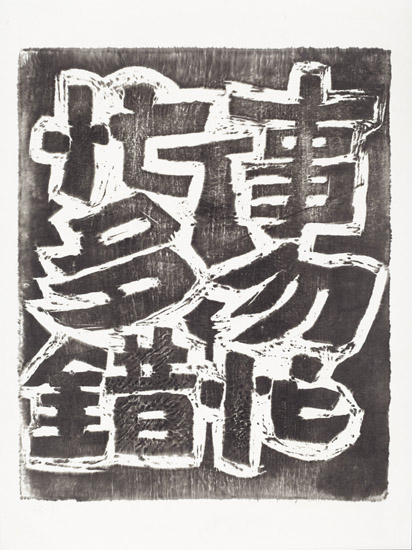 事勿忙
忙多錯